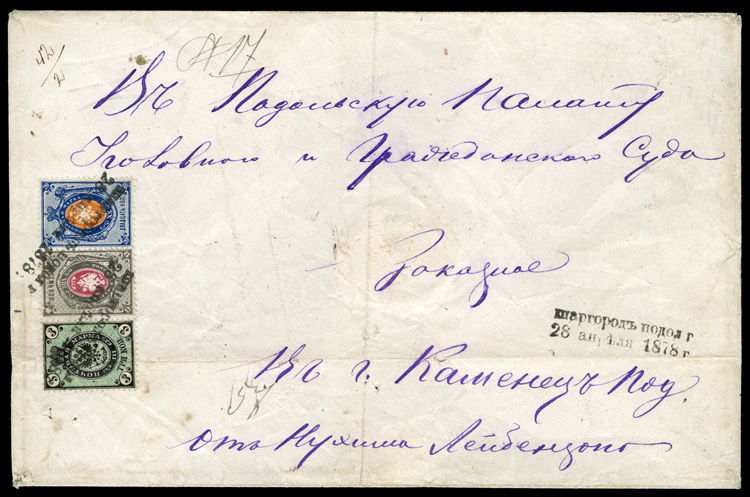 42/2
№17
Въ Подольскую Палату
Уголовного и Гражданского Суда
Заказное
шаргородъ подол г
28 апрѣля 1878 г
Въ г. Каменецъ Под.
отъ Нухима Лейбензонъ
3 3
МАРКА
3 3